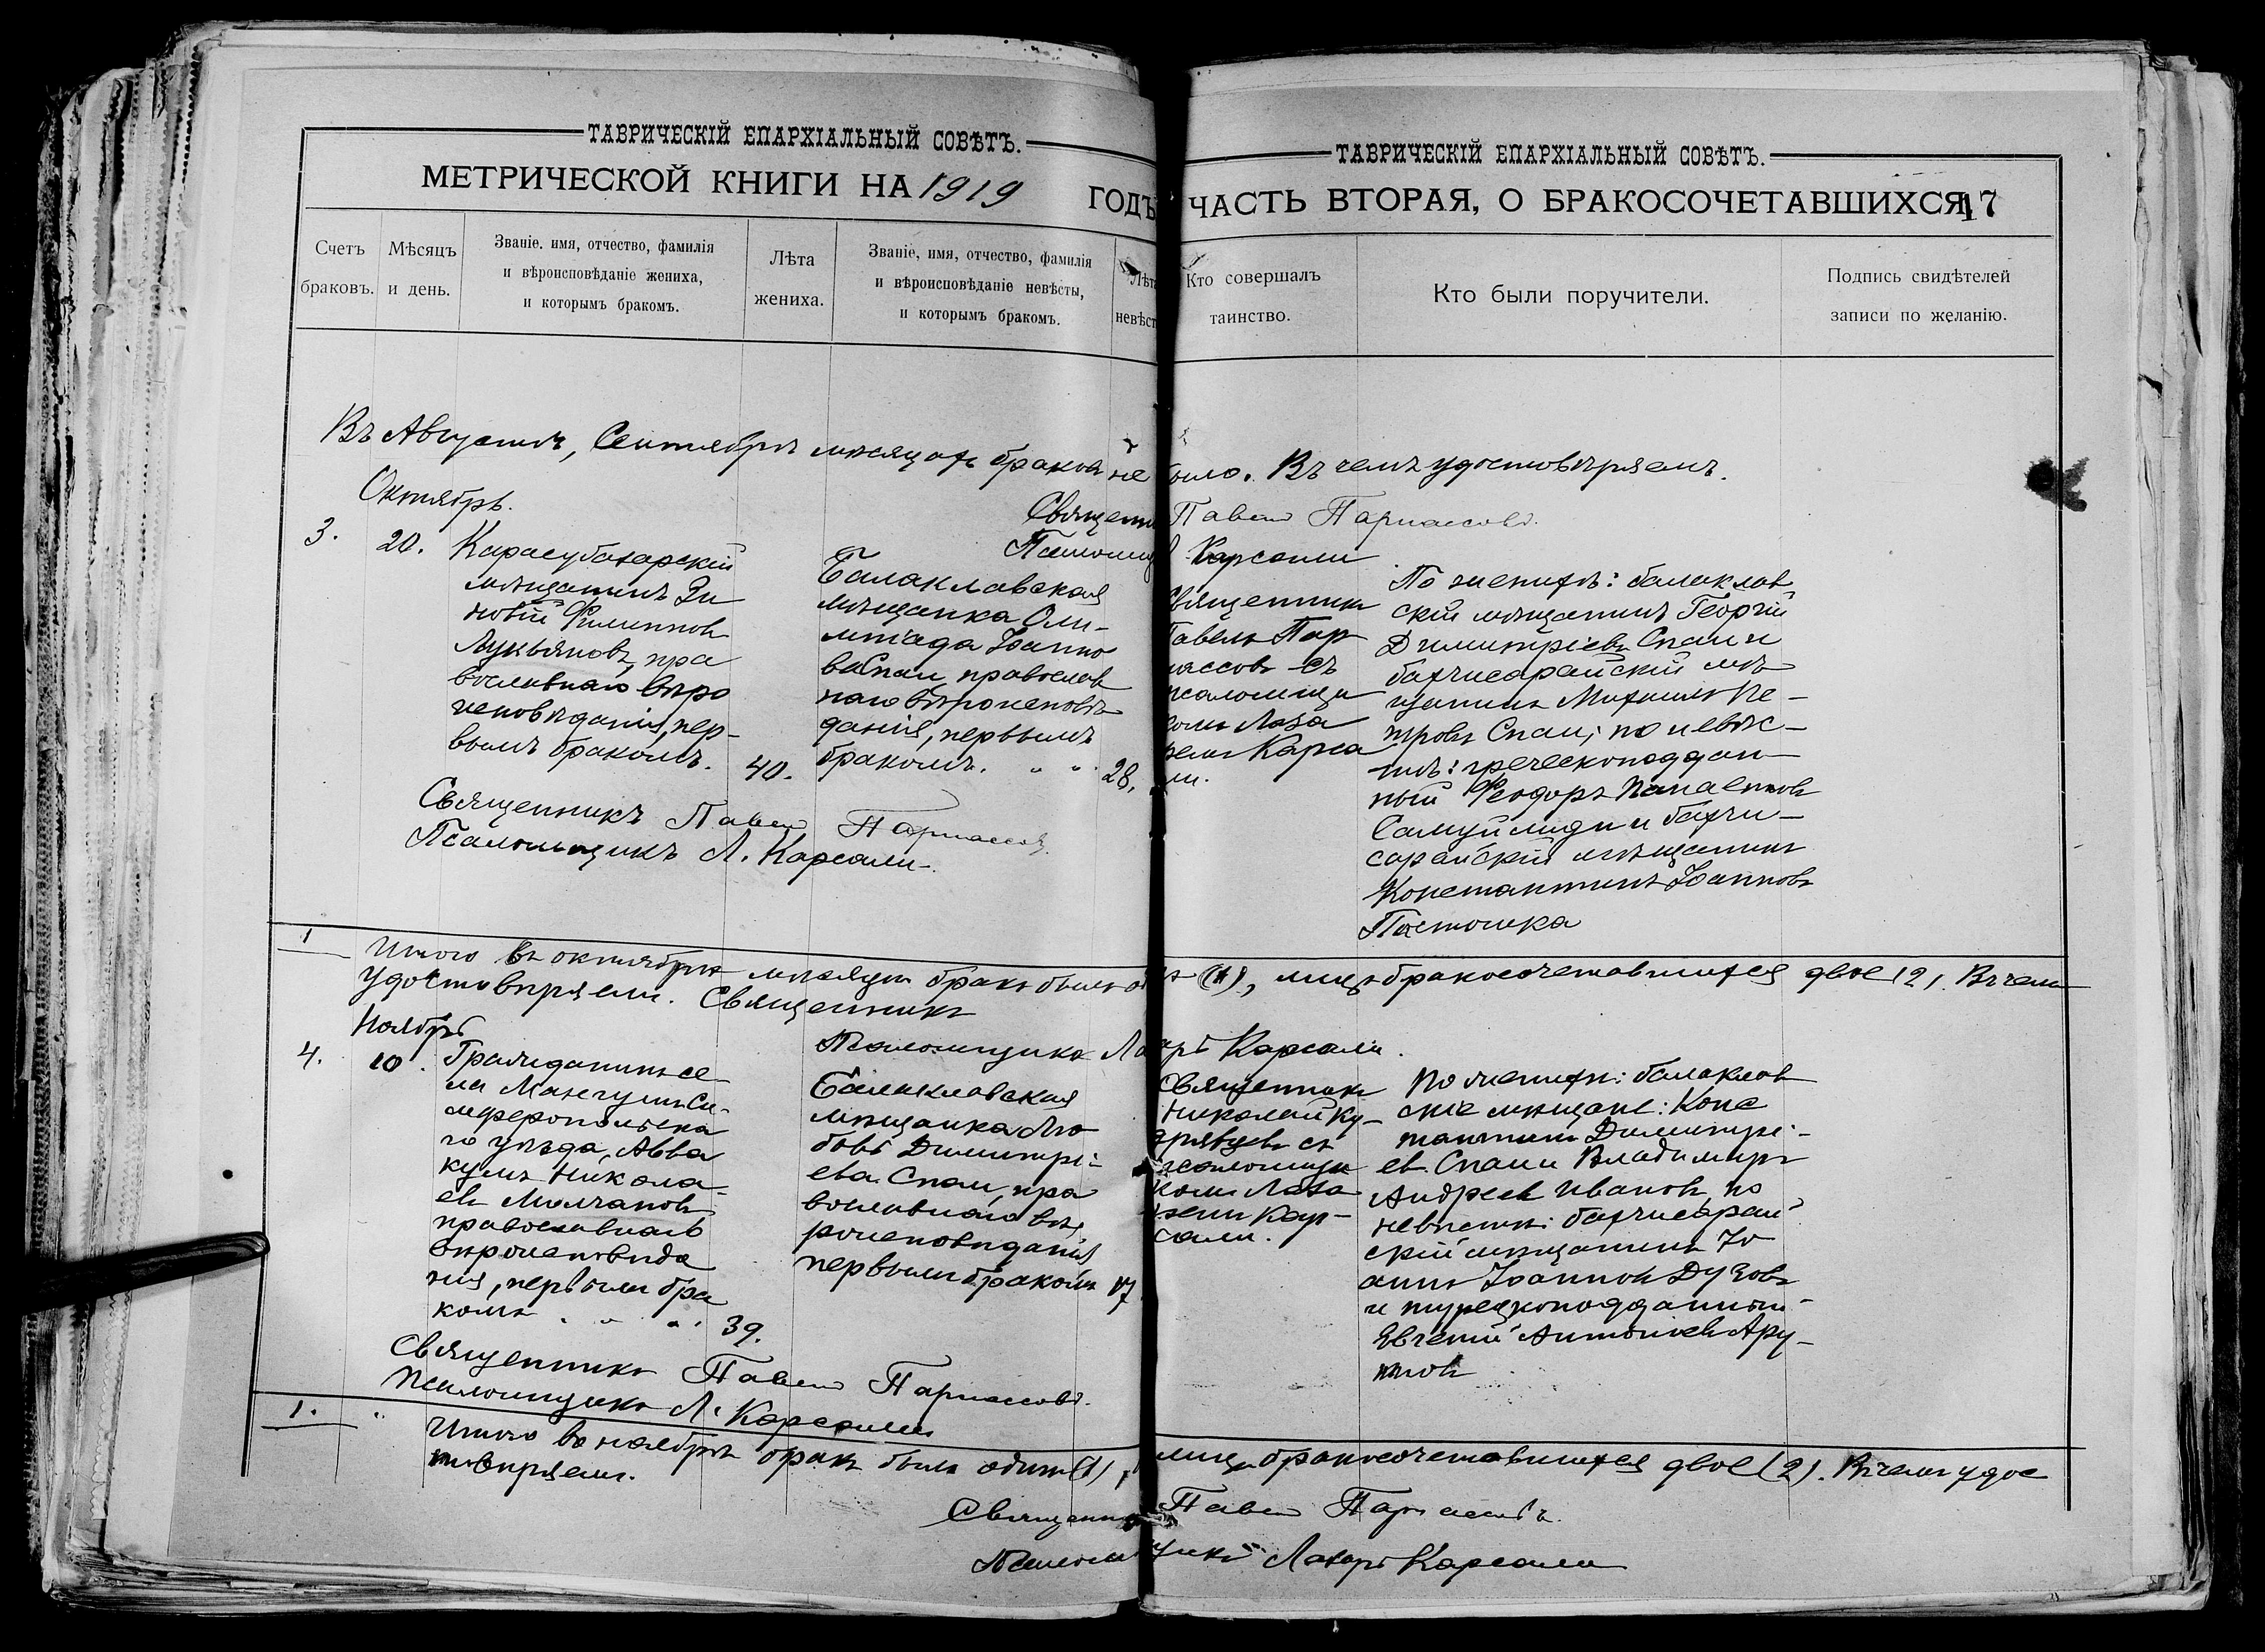 ТАВРИЧЕСКІЙ ЕПАРХІАЛЬНЫЙ СОВѢТЪ.
МЕТРИЧЕСКОЙ КНИГИ НА 1919 ГОДЪ
Счетъ браковъ.
Мѣсяцъ и день.
Званіе, имя, отчество, фамилія
и вѣроисповѣданіе жениха,
и которымъ бракомъ.
Лѣта
жениха.
Званіе, имя, отчество, фамилія
и вѣроисповѣданіе невѣсты,
и которымъ бракомъ.
Лѣта
невѣст
ТАВРИЧЕСКІЙ ЕПАРХІАЛЬНЫЙ СОВѢТЪ.
ЧАСТЬ ВТОРАЯ, О БРАКОСОЧЕТАВШИХСЯ 17
Кто совершалъ
таинство.
Кто были поручители.
Подпись свидѣтелей
записи по желанію.
Въ Августѣ, Сентябрѣ мѣсяцахъ браковъ не было. Въ чемъ удостовѣряемъ.
Священн Павелъ Парнассовъ.
Псаломщ Л. Карсали
Октябрь.
3.
20.
Карасубазарскій
мѣщанинъ Зи
новій Филиппов
Лукьяновъ, пра
вославнаго вѣро
исповѣданія, пер-
вымъ бракомъ.
40.
Балаклавская
мѣщанка Оли-
мпіада Іоанно
ва Спаи, православ
наго вѣроисповѣ
данія, первымъ
бракомъ.
28.
Священникъ
Павелъ Пар
нассовъ съ
псаломщи
комъ Лаза
ремъ Карса
ли.
По женихѣ: балаклав
скій мѣщанинъ Георгій
Димитріевъ Спаи и
бахчисарайскій мѣ
щанинъ Михаилъ Пе-
тровъ Спаи; по невѣс-
тѣ: греческоподдан
ный Феодоръ
и бахчи-
сарайскій мѣщанинъ
Константинъ Іоанновъ
Священникъ Павелъ Парнассовъ.
Псаломщикъ Л. Карсали.
1
Итого въ октябрѣ мѣсяцѣ бракъ былъ о нъ (1), лицъ бракосочетавшихся двое (2). Въ чемъ
удостовѣряемъ. Священникъ
Псаломщикъ Лазарь Карсали.
Ноябрь
4.
10.
Гражданинъ се-
ла Мангушъ Си-
мферопольска
го уѣзда, Авва
кумъ Никола-
евъ Молчановъ
православнаго
вѣроисповѣда
нія, первымъ бра
комъ
39.
Балаклавская
мѣщанка Лю
бовь Димитрі-
ева Спаи, пра
вославнаго вѣ
роисповѣданія
первымъ бракомъ
17
Священникъ
Николай Ку-
дрявцевъ съ
псаломщи
комъ Лаза
ремъ Кар-
сали.
По женихѣ: балаклав
скіе мѣщане: Конс
тантинъ Димитрі-
евъ Спаи и Владимиръ
Андреевъ Ивановъ, по
невѣстѣ: бахчисарай
скій мѣщанинъ Іо
аннъ Іоанновъ
и турецкоподданный
Евгеній Антоновъ Ару-
тновъ
Священникъ Павелъ Парнассовъ.
Псаломщикъ Л. Карсали
1.
Итого въ ноябрѣ бракъ былъ одинъ (1), лицъ бракосочетавшихся двое (2). Въ чемъ удос
товѣряемъ.
Священникъ Павелъ Парнассовъ.
Псаломщикъ Лазарь Карсали